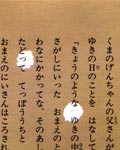 くまのげんちゃんの父さんが
ゆきの日のことを はなして
「きょうのような ゆきの中
さがしにいった おまえのと
わなにかかってな、そのあし
たどって てっぽううちと
おまえのにいさんはころされ